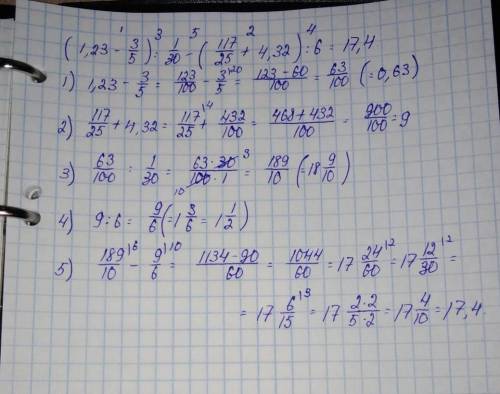 (1,23 - 3/5) : 1/30 - (117/25 + 4,32) : 6 = 17,4
1) 1,23 - 3/5 = 123/100 - 3/5 = (123 - 60)/100 = 63/100 (= 0,63)
2) 117/25 + 4,32 = 117/25 + 432/100 = (468 + 432)/100 = 900/100 = 9
3) 63/100 : 1/30 = (63 · 30)/(100 · 1) = 189/10 (= 18 9/10)
4) 9 : 6 = 9/6 (= 1 3/6 = 1 1/2)
5) 189/10 - 9/6 = (1134 - 90)/60 = 1044/60 = 17 24/60 = 17 12/30 =
= 17 6/15 = 17 (2·2)/(5·2) = 17 4/10 = 17,4